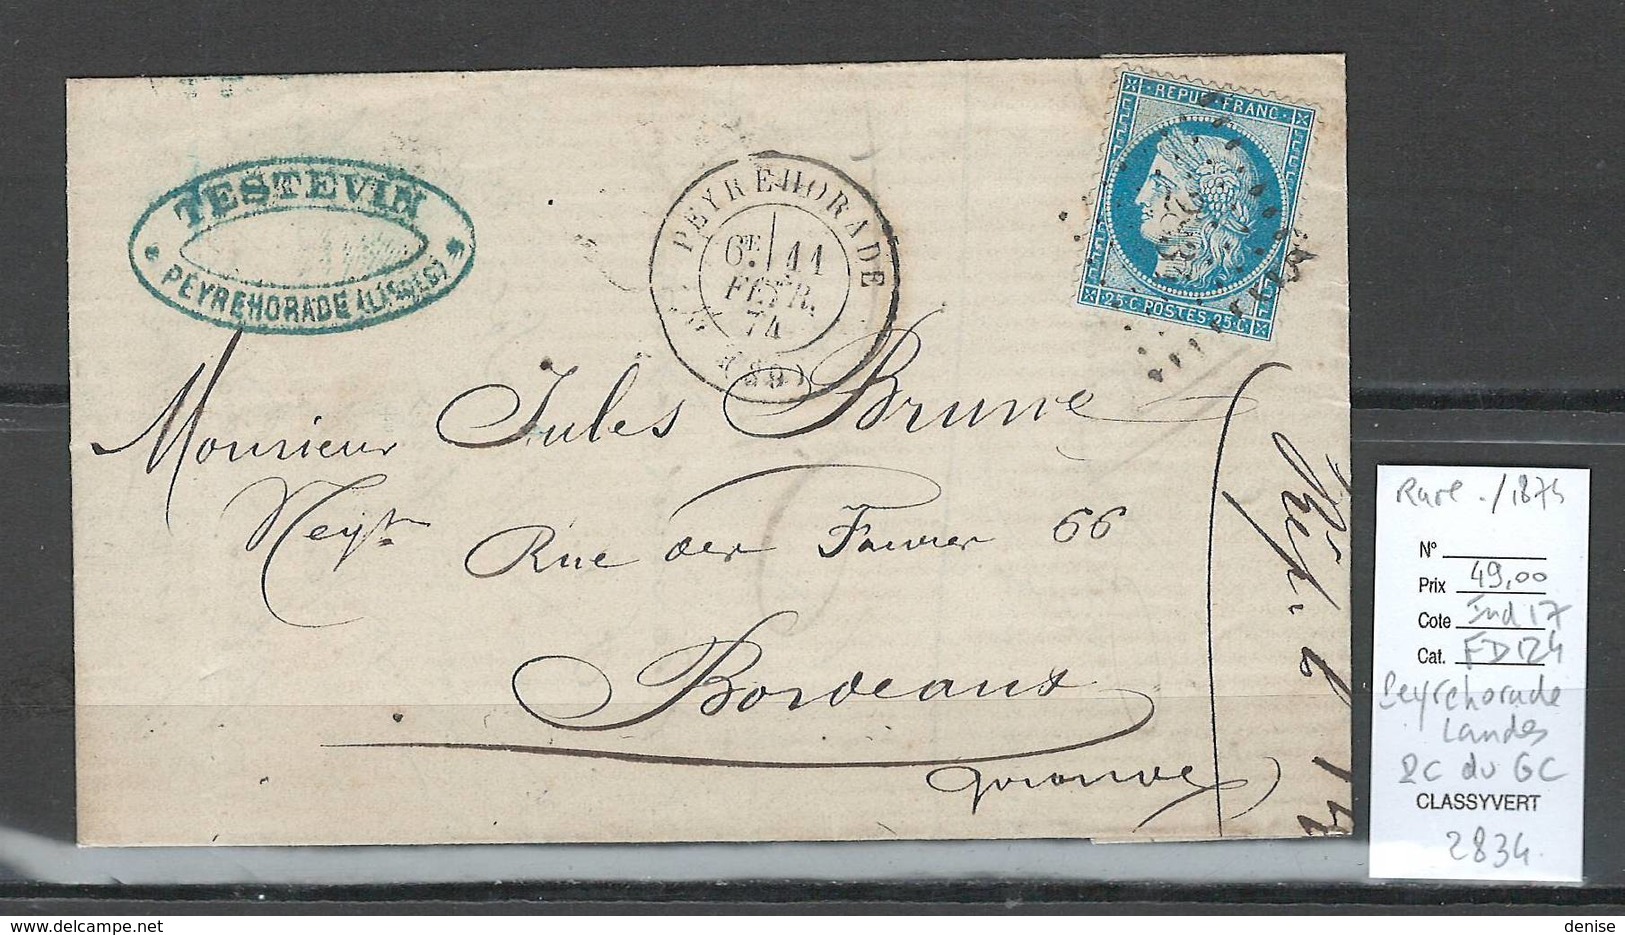 TESTEVIN
PEYREHORADE (LANDES)
PEYREHORADE
6E 11
FEVR.
74
(39)
REPUB FRANC
25 C POSTES 25 C
Monsieur Jules Brune
Negt
Rue des Faures 66
Bordeaux
Gironde
Rare ./1874
N°
Prix 49,00
Cote Ind 17
Cat. FD 124
Peyrehorade
Landes
2C du GC
CLASSYVERT
2834.
denise